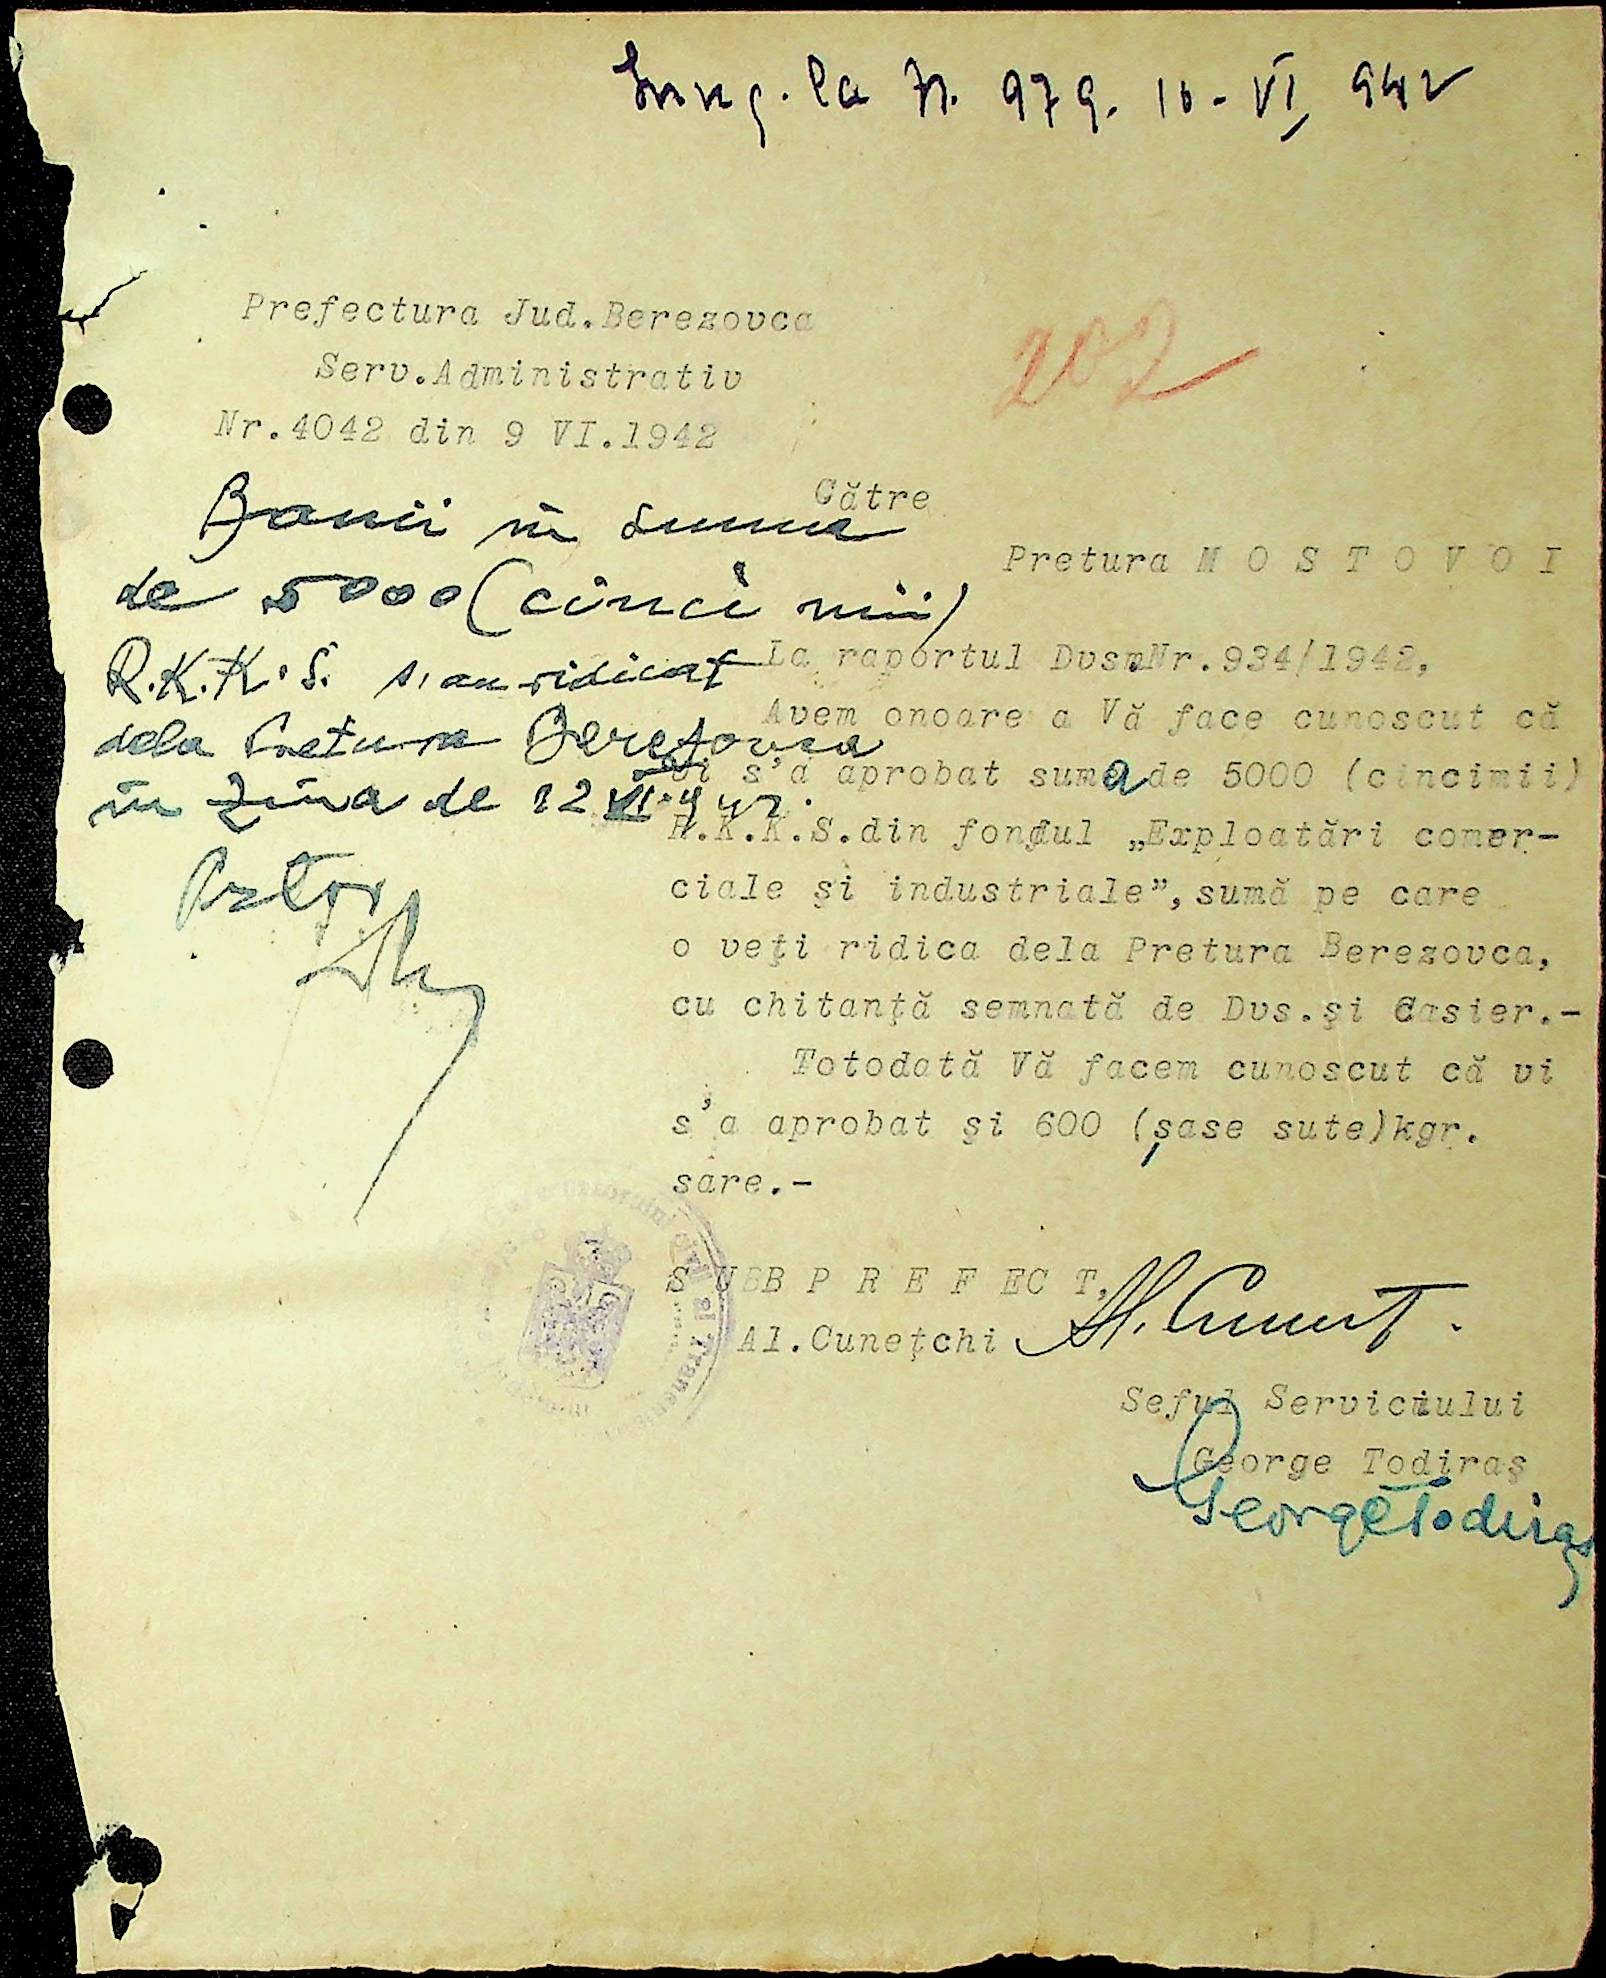 Inreg. la N. 979. 10-VI, 942
Prefectura Jud.Berezovca
Serv.Administrativ
Nr.4042 din 9 VI.1942
202
Către
Pretura M O S T O V O I
Banii în suma
de 5000 (cinci mii)
R.K.K.S. s'au ridicat
dela Pretura Berezovca
în ziua de 12 VI.942.
Pretor
La raportul Dvs.Nr.934/1942,
Avem onoare a Vă face cunoscut că
vi s'a aprobat suma de 5000 (cincimii)
R.K.K.S.din fondul „Exploatări comer-
ciale şi industriale”,sumă pe care
o veţi ridica dela Pretura Berezovca,
cu chitanţă semnată de Dvs.şi Casier.-
Totodată Vă facem cunoscut că vi
s'a aprobat şi 600 (şase sute)kgr.
sare.-
S U B P R E F E C T,
Al.Cuneţchi
Seful Serviciului
George Todiraş
George Todiraş